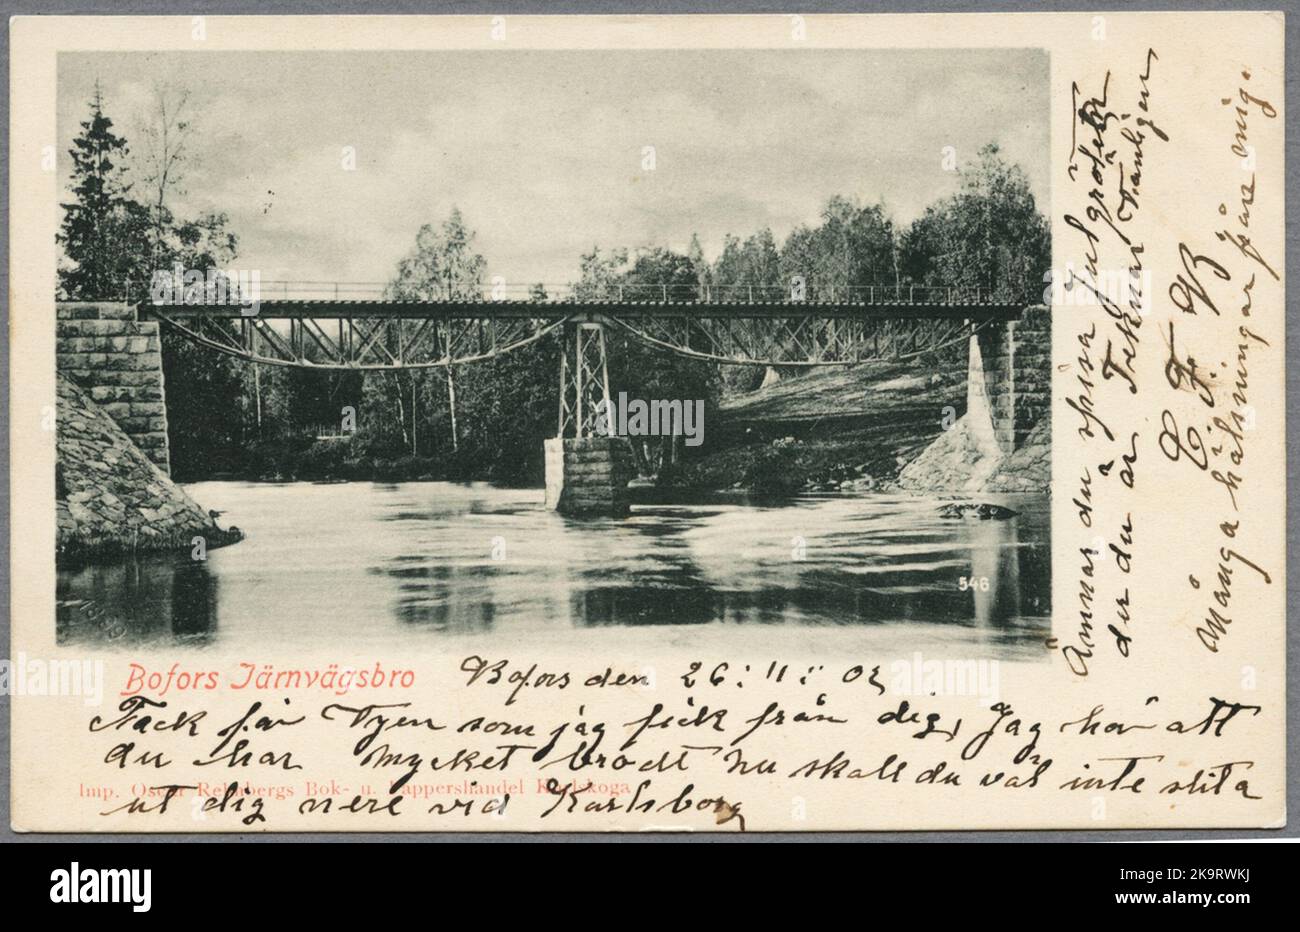 546
Bofors Järnvägsbro
Bofors den 26 : 11 : 02
Tack får Vyen som jag fick från dig, Jag hör att
du har mycket brodt Nu skall du väl inte slita
Imp. Oscar Bok- u. Pappershandel Karlskoga
ut dig nere vid Karlsborg
Ämnar du spisa Julgröten
der du är Tecknar Vänligen
E F B
Många hälsningar från mig.
alamy
Image ID: K9RWKJ
www.alamy.com